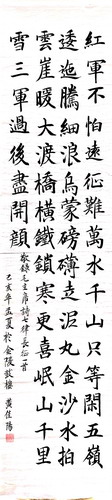 紅軍不怕遠征難萬水千山只等閑五嶺
逶迤騰細浪烏蒙磅礴走泥丸金沙水拍
雲崖暖大渡橋橫鐵鎖寒更喜岷山千里
雪三軍過後盡開顏
敬錄毛主席詩七律長征一首
己亥年孟夏於金陵 黃佳陽